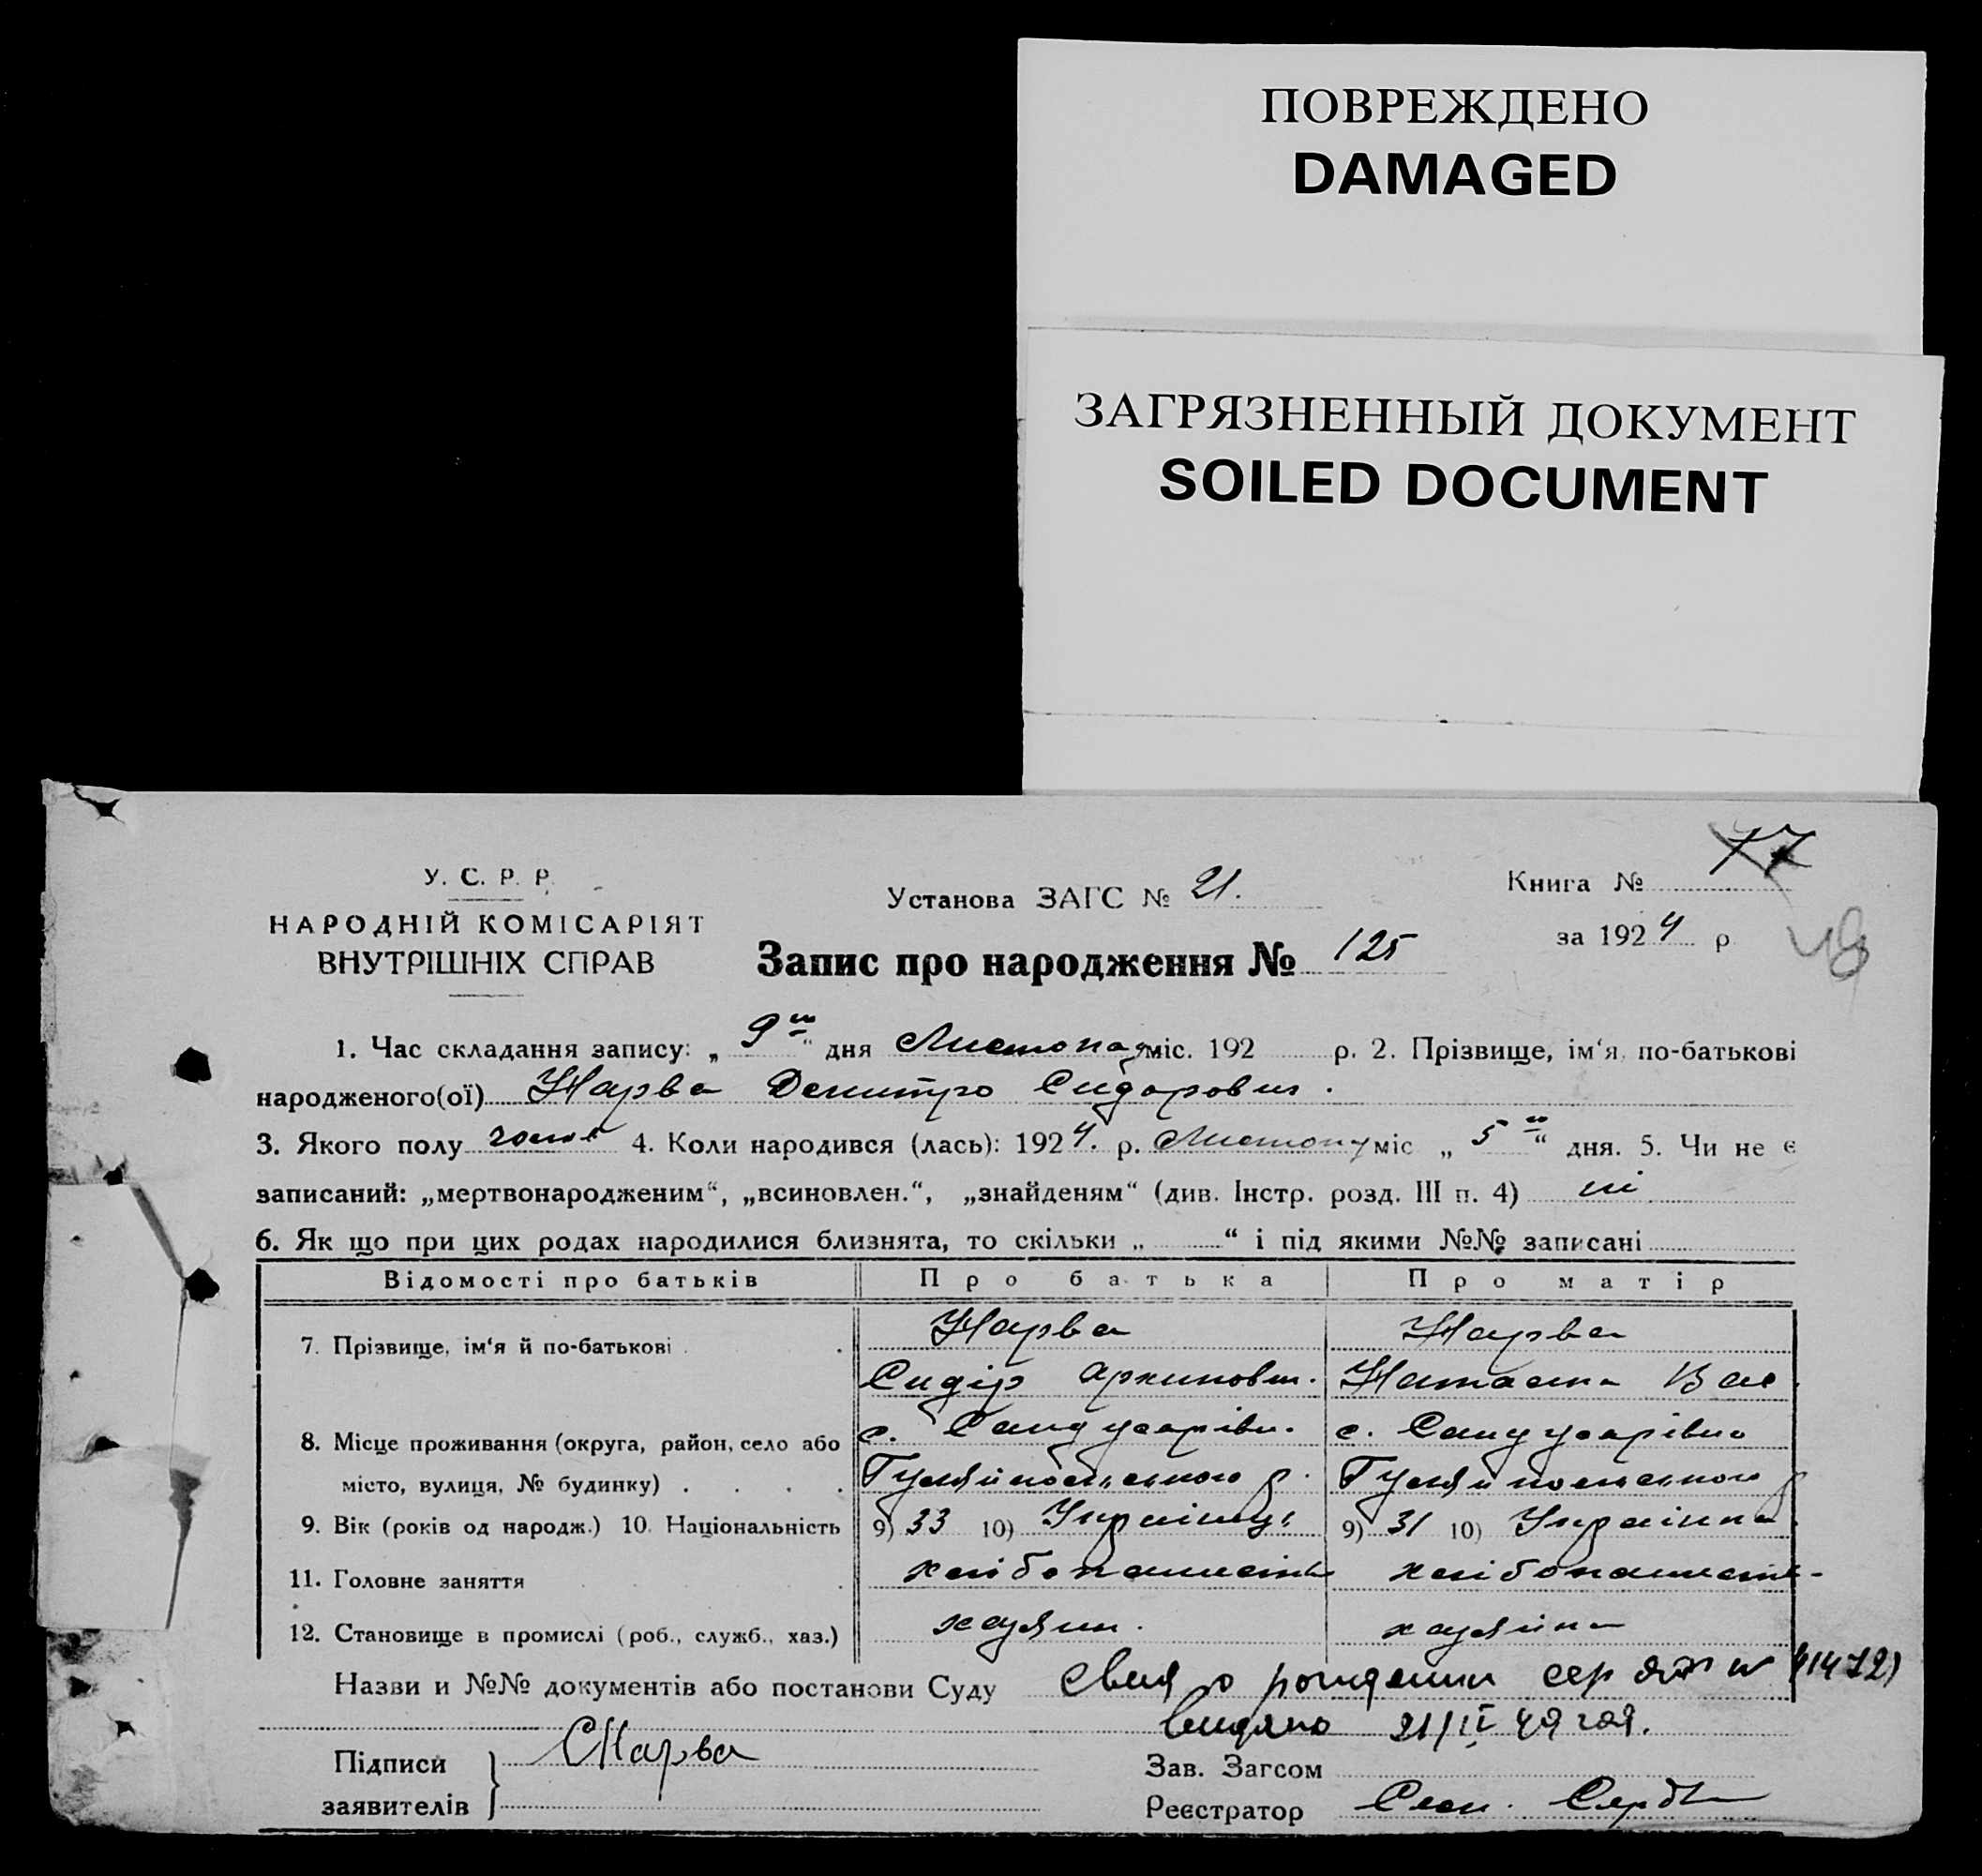 ПОВРЕЖДЕНО
DAMAGED
ЗАГРЯЗНЕННЫЙ ДОКУМЕНТ
SOILED DOCUMENT
У. С. Р. Р.
НАРОДНІЙ КОМІСАРІЯТ
ВНУТРІШНІХ СПРАВ
Установа ЗАГС № 21.
Запис про народження № 125
Книга № 17
за 1924 р
48
1. Час складання запису: „ 9го “ дня Листопад міс. 192 р. 2. Прізвище, ім‘я, по-батькові
народженого(ої) Нарва Демитро Сидорович.
3. Якого полу 4. Коли народився (лась): 1924. р. Листопу міс „ 5го “ дня. 5. Чи не є
записаний: „мертвонародженим“, „всиновлен.“, „знайденям“ (див. Інстр. розд. III п. 4) ні
6. Як що при цих родах народилися близнята, то скільки „ “ і під якими №№ записані
Відомості про батьків Про батька Про матір
7. Прізвище, ім‘я й по-батькові . . Нарва Нарва
Сидір Архипович. Настасія Вас.
8. Місце проживання (округа, район, село або с. с.
місто, вулиця, № будинку) . . . . Гуляйпольського р. Гуляйпольського р
9. Вік (років од народж.) 10. Національність 9) 33 10) Українець 9) 31 10) Українка
11. Головне заняття . . хлібопашест. хлібопашест.
12. Становище в промислі (роб., служб., хаз.) хазяин. хазяйка
Назви и №№ документів або постанови Суду о рождении сер
видано 21/IV 49 год.
Підписи СНарва
заявителів
Зав. Загсом
Реєстратор